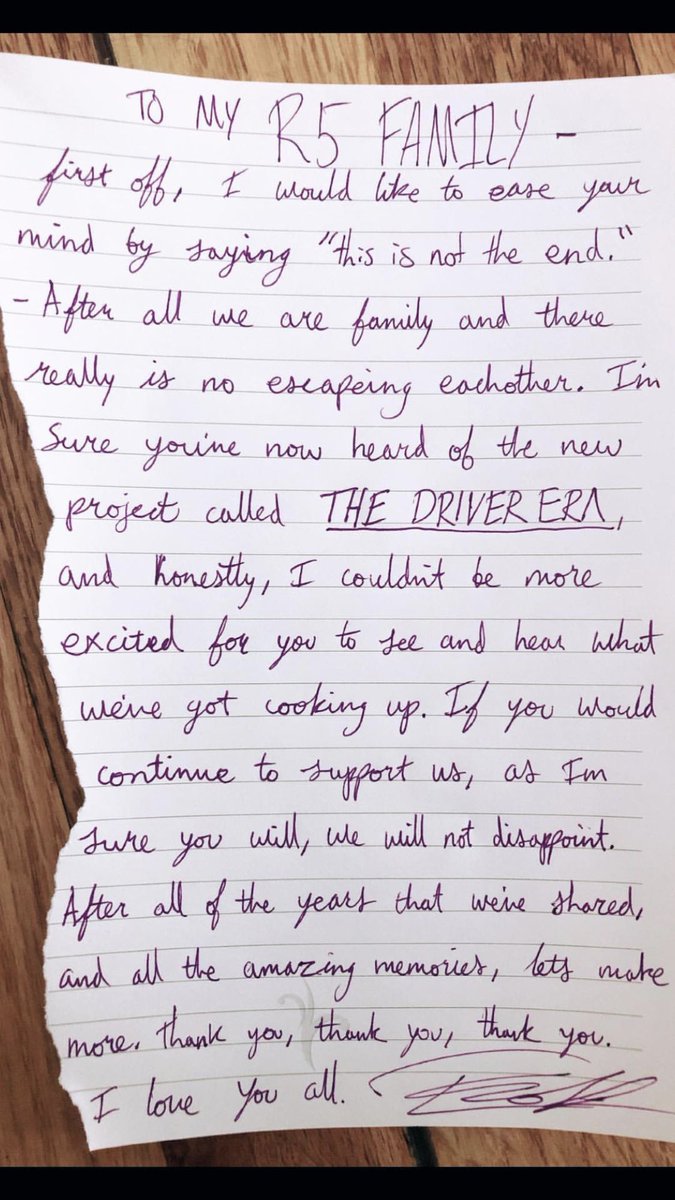 TO MY R5 FAMILY -
first off, I would like to ease your
mind by saying "this is not the end."
- After all we are family and there
really is no escapeing eachother. I'm
Sure you've now heard of the new
project called THE DRIVER ERA,
and honestly, I couldn't be more
excited for you to see and hear what
we've got cooking up. If you would
continue to support us, as I'm
sure you will, we will not disappoint.
After all of the years that we've shared,
and all the amazing memories, lets make
more. thank you, thank you, thank you.
I love you all.